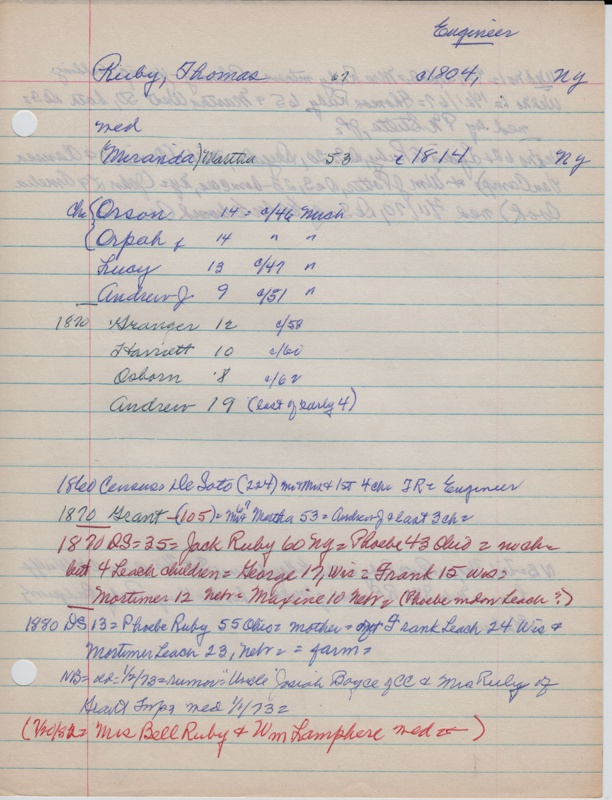 Engineer
Ruby, Thomas 67 c1804, Ny
med
(Miranda) Martha 53 c 1814 Ny
Chr { Orson 14 = c/46 Mich
{ Orpah f 14 " "
Lucy 13 c/47 "
Andrew J 9 c/51 "
1870 Granger 12 c/58
Harriett 10 c/60
Osborn 8 c/62
Andrew 19 (last of early 4)
1860 Census De Soto (224) Mr & Mrs & 1st 4 chr TR= Engineer
1870 Grant (105) = Martha 53 = Andrew J & last 3 ch =
1870 DS = 35 = Jack Ruby 60 Ny = Phoebe 43 Ohio = no chr
but 4 Leach children = George 17, Wis = Frank 15 Wis =
Mortimer 12 Nebr = Maxine 10 Nebr (Phoebe m Leach?)
1880 DS 13 = Phoebe Ruby 55 Ohio = mother = of Frank Leach 24 Wis &
Mortimer Leach 23, Nebr = = farm =
NB = 1/2/73 = rumor = "Uncle" Josiah Boyce of CC & Mrs Ruby of
Grant Twp med 1/1/73 =
( /82 = Mrs Bell Ruby & Wm Lamphere med )